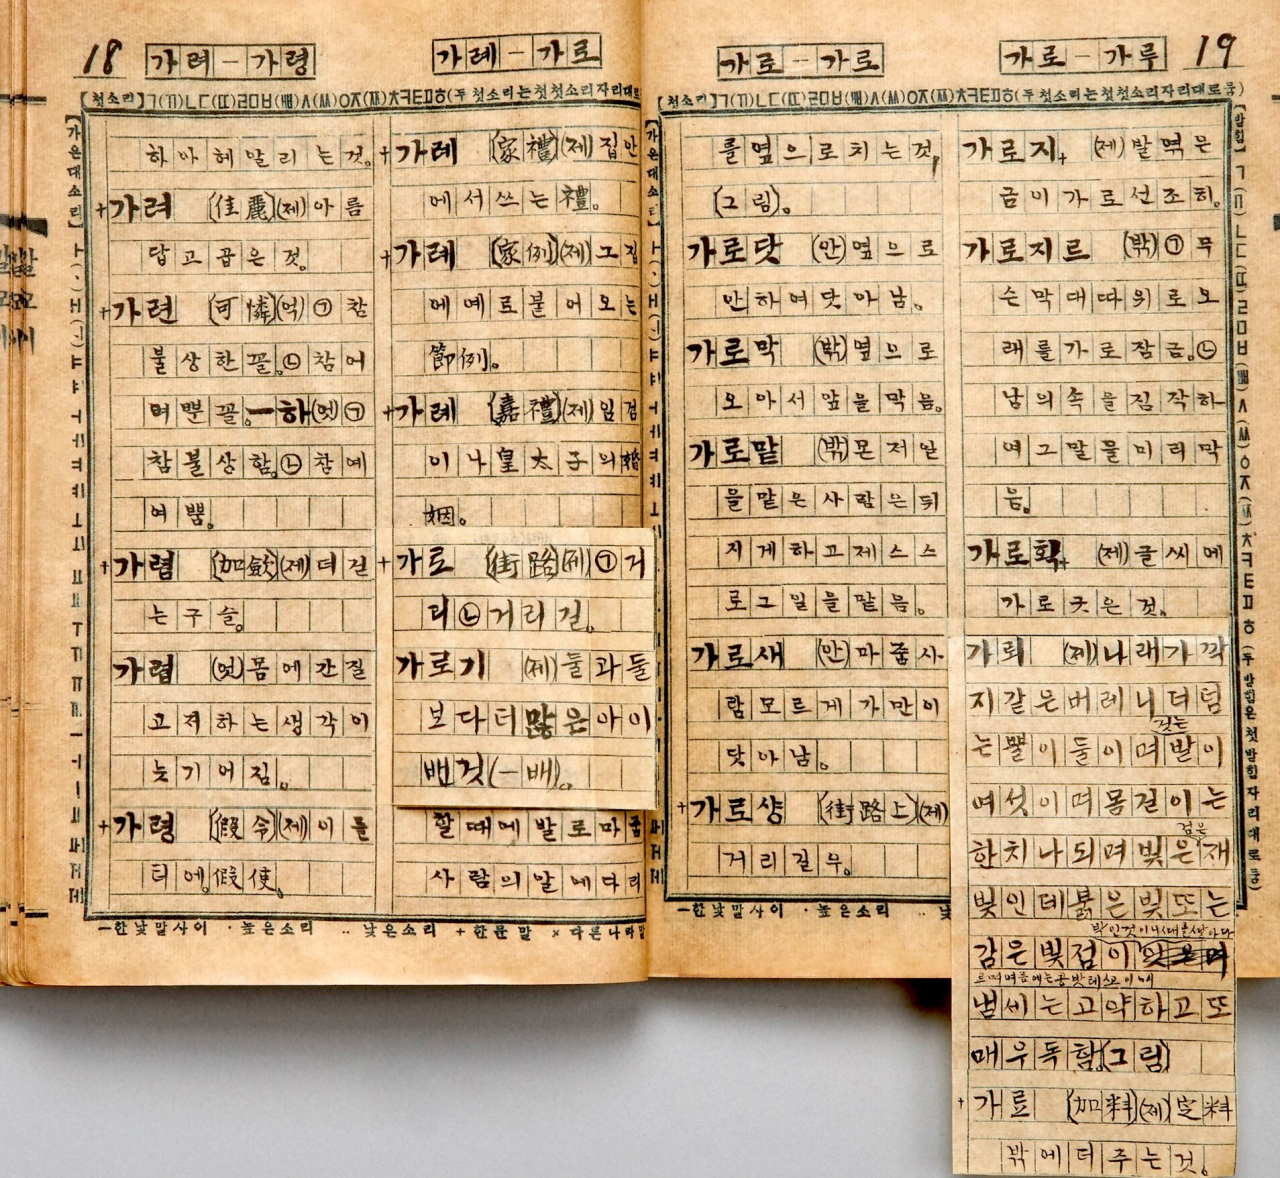 18 가려-가령
하아혀말리는것。
+가려 (佳麗)(제)아름
답고곱은것。
+가련 (可憐)(억)㉠참
불상한꼴。㉡참어
며뿐꼴。―하(엇)㉠
참불상함。㉡참예
여쁨。
+가렴 (加斂)(제)더걷
는구슬。
가렴 (엇)몸에간질
고저하는생각이
늣기어짐。
+가령 (假令)(제)이를
터에。假使。
가례-가로
+가례 (家禮)(제)집안
에서쓰는禮。
+가례 (家例)(제)그집
에예로불어오는
節例。
+가례 (嘉禮)(제)임검
이나皇太子의婚
姻。
+가로 (街路)(제)㉠거
리㉡거리길。
가로기 (제)둘과둘
보다더많은아이
밴것(―배)。
할때에발로마줍
사람의말에다리
ㅡ한낮말사이 ·높은소리 ‥낮은소리 +한문말 ×다른나라말
가로-가로
【첫소리】ㄱ(ㄲ)ㄴㄷ(ㄸ)ㄹㅁㅂ(ㅃ)ㅅ(ㅆ)ㅇㅈ(ㅉ)ㅊㅋㅌㅍㅎ(두첫소리는첫첫소리자리대로둠)
를옆으로치는것,
(그림)。
가로닷 (안)옆으로
안하여닷아남。
가로막 (밖)옆으로
오아서앞을막음。
가로맡 (밖)몬저일
을맡은사람은뒤
지게하고제스스
로그일을맡음。
가로새 (안)마줍사
람모르게가만이
닷아남。
+가로샹 (街路上)(제)
거리길우。
가로-가루 19
가로지+ (제)발멱은
금이가로선조히。
가로지르 (밖)㉠무
슨막대따위로노
래를가로잠금。㉡
남의속을짐작하
여그말을미리막
음。
가로획+ (제)글씨에
가로긋은것。
가뢰 (제)나래가깍
지같은버레니더텀
는뿔이둘이며발이
여섯이며몸길이는
한치나되며빛은재
검은
빛인데붉은빛또는
감은빛점이
냄세는고약하고또
매우독함。(그림)
+가료 (加料)(제)定料
밖에더주는것。